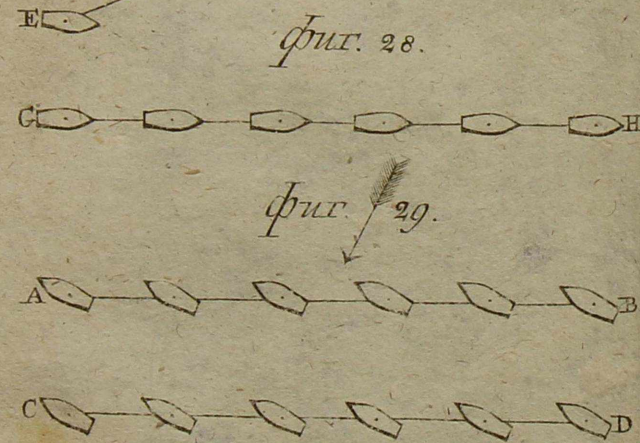 E
фиг. 28.
G H
фиг. 29.
A B
C D